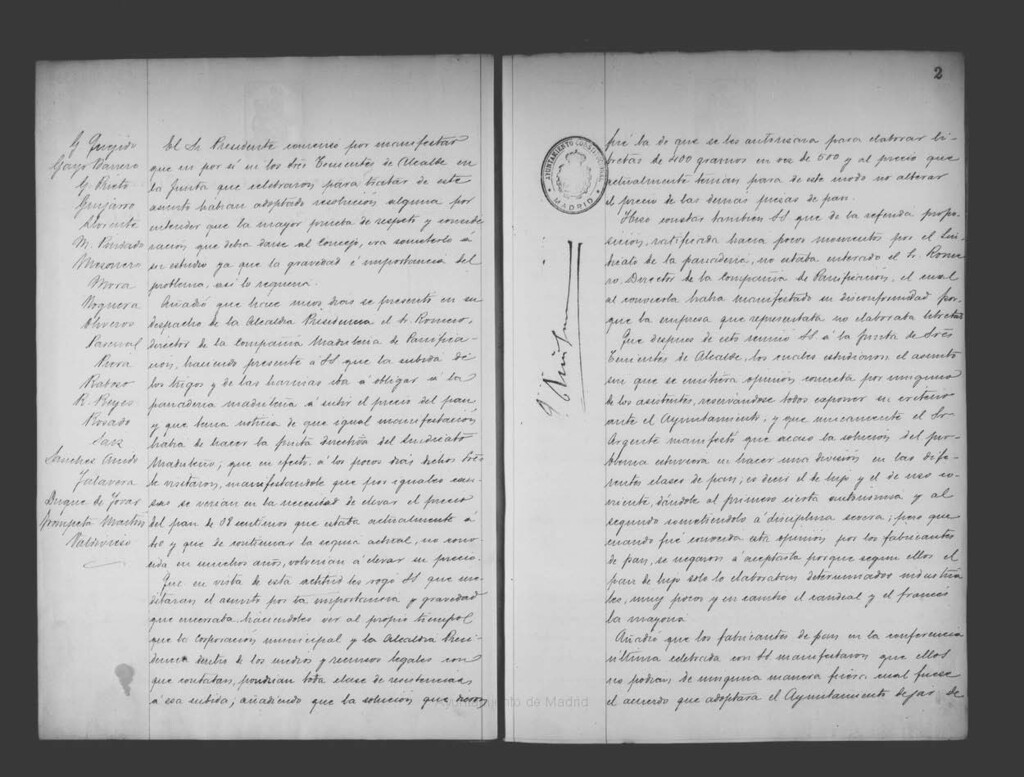 G Quejido
Garrido
G. Prieto
Guijarro
Llorente
Mesonero
Mora
Noguera
Pascual
Piera
Raboso
R. Reyes
Rosado
Sanz
Talavera
Duque de Tovar
Trompeta Martin
Valdivieso
El Sr Presidente comenzo por manifestar
que ni por si ni los tres Tenientes de Alcalde en
la Junta que celebraron para tratar de este
asunto habian adoptado resolución alguna por
entender que la mayor prueba de respeto y conside
ración que debia darse al Concejo, era someterlo á
su estudio ya que la gravedad é importancia del
problema, asi lo requeria.
Añadió que hace unos dias se presentó en su
despacho de la Alcaldia Presidencia el Sr. Romero,
director de la Compañia Madrileña de Panifica-
cion, haciendo presente á SS que la subida de
los trigos y de las harinas iba á obligar á la
panaderia madrileña á subir el precio del pan
y que tenia noticia de que igual manifestación
habia de hacer la Junta directiva del Sindicato
Madrileño; que en efecto, á los pocos dias dichos Sres
le visitaron, manifestandole que por iguales cau-
sas se verian en la necesidad de elevar el precio
del pan de 58 centimos que estaba actualmente á
60 y que de continuar la sequia actual, no cono-
cida en muchos años, volverian á elevar su precio.
Que en vista de esta actitud les rogó SS que me
ditaran el asunto por la importancia y gravedad
que encerraba haciendoles ver al propio tiempo
que la Corporación municipal y la Alcaldia Presi-
dencia dentro de los medios y recursos legales con
que contaban, pondrian toda clase de resistencias
á esa subida; añadiendo que la solución que dieron
2
AYUNTAMIENTO CONSTITUCIONAL
MADRID
fué la de que se les autorizara para elaborar li-
bretas de 400 gramos en vez de 500 y al precio que
actualmente tenian para de este modo no alterar
el precio de las demás piezas de pan.
Hizo constar tambien SS que de la referida propo-
sicion, ratificada hacia pocos momentos por el Sin-
dicato de la panaderia, no estaba enterado el Sr. Rome-
ro, Director de la Compañia de Panificación, el cual
al conocerla habia manifestado su disconformidad por-
que la empresa que representaba no elaboraba libretas
Que despues de esto reunio SS á la Junta de Sres
Tenientes de Alcalde, los cuales estudiaron el asunto
sin que se emitiera opinión concreta por ninguno
de los asistentes, reservandose todos exponer su criterio
ante el Ayuntamiento, y que unicamente el Sr
Argente manifestó que acaso la solucion del pro-
blema estuviera en hacer una división en las dife-
rentes clases de pan, es decir el de lujo y el de uso co-
rriente, dándole al primero cierta autonomia y al
segundo sometiendolo á disciplina severa; pero que
cuando fué conocida esta opinión por los fabricantes
de pan, se negaron á aceptarla porque segun ellos el
pan de lujo solo lo elaboraban determinados industria
les, muy pocos y en cambio el candeal y el francés
la mayoria
Añadió que los fabricantes de pan en la conferencia
última celebrada con SS manifestaron que ellos
no podian, de ninguna manera fuese cual fuese
el acuerdo que adoptara el Ayuntamiento dejar de
Ayuntamiento de Madrid